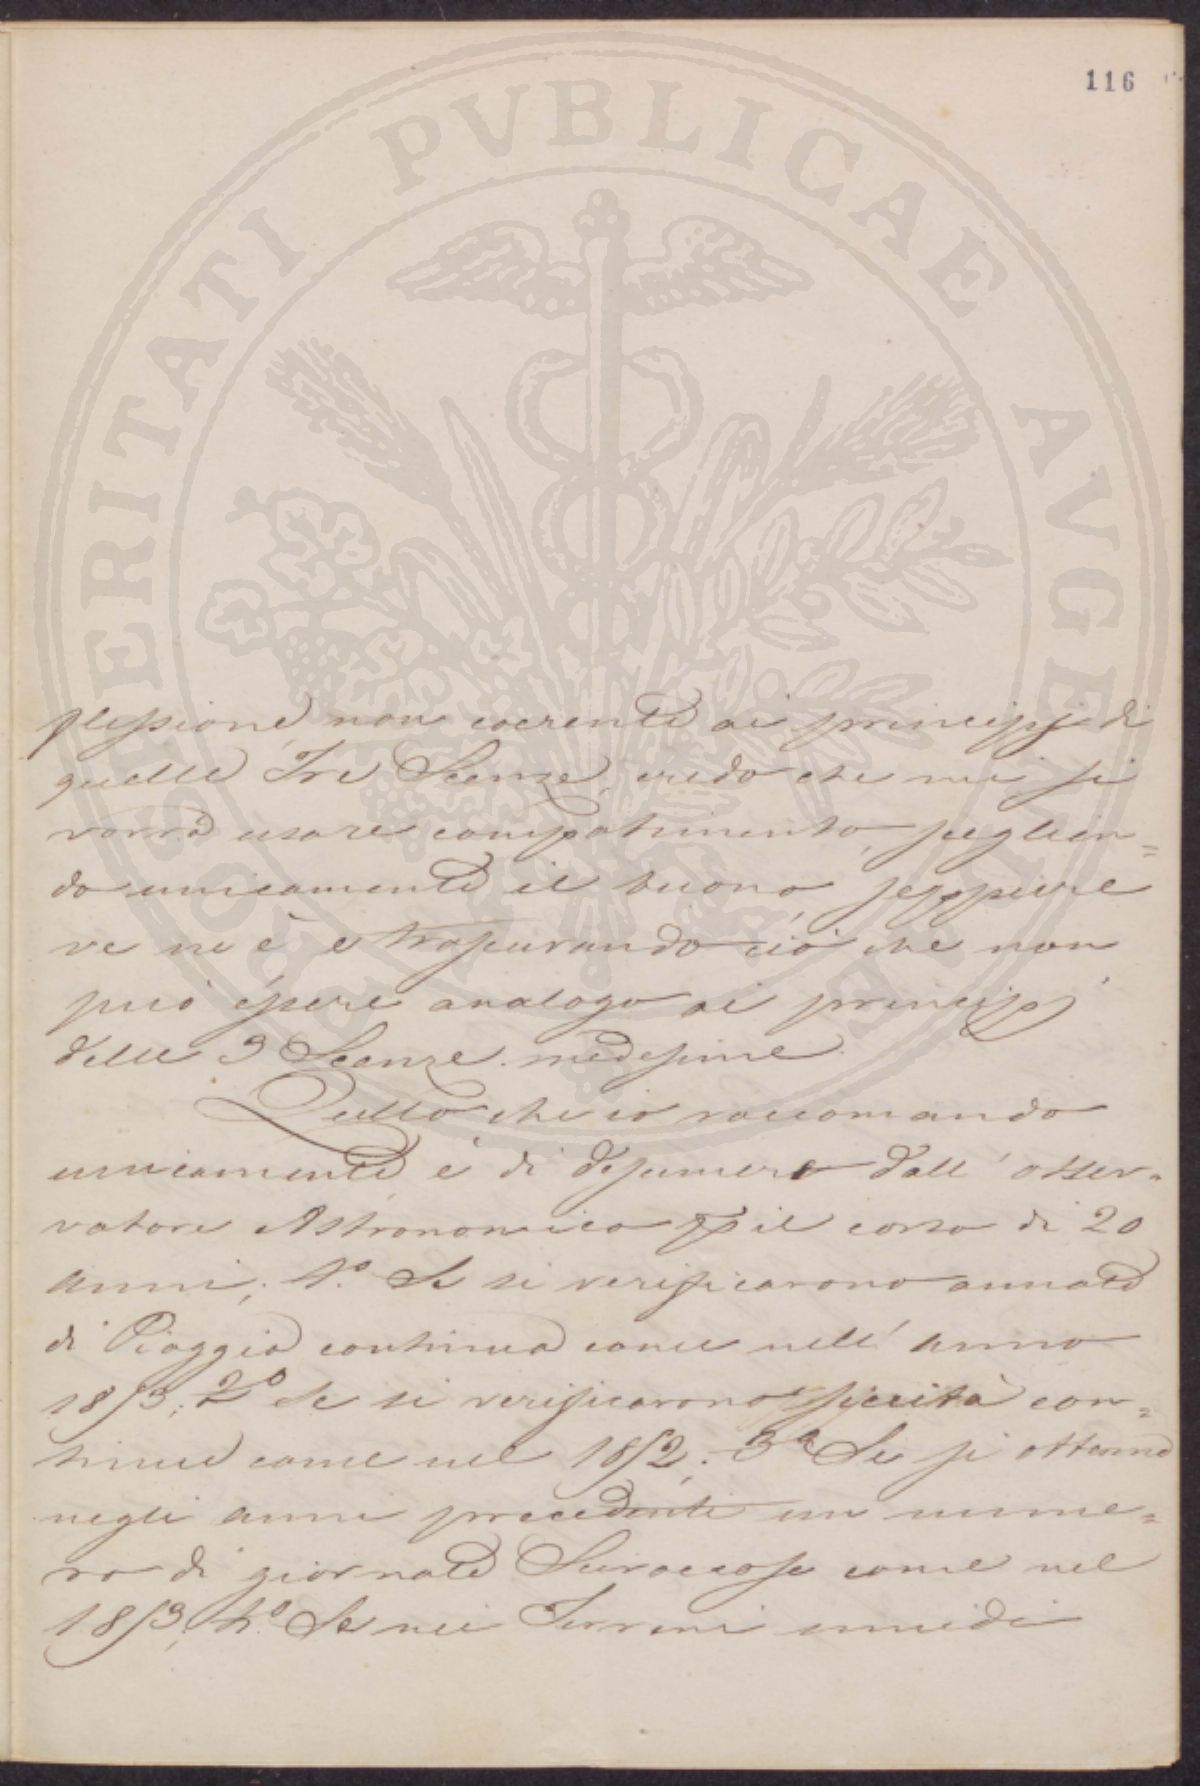 116
PROSPERITATI PVBLICAE AVGENDAE
flessione, non coerente ai principj di
quelle Tre Scenze, credo che mi si
vorrà usare compatimento, sceglien=
do unicamente il buono, seppure
ve ne è e trascurando ciò che non
può essere analogo ai principj
delle 3 Scenze medesime.
Quello che io raccomando
unicamente è di desumere dall' osser=
vatore Astronomico il corso di 20
anni; 1.º Se si verificarono annate
di Pioggia continua come nell' anno
1853; 2º Se si verificarono siccità con=
tinue come nel 1852; 3º Se si ottenne
negli anni precedenti un nume=
ro di giornate Sciroccose come nel
1853; 4º Se nei Terreni umidi